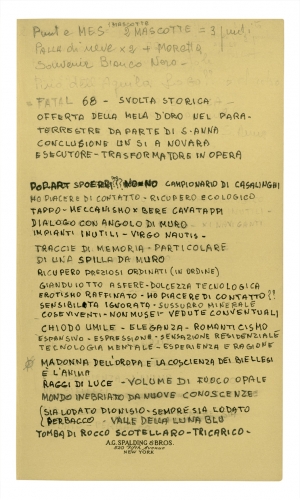 MASCOTTE
Punt e MES 2 MASCOTTE = 3
Palla di neve x 2 + Moretta
Souvenir Bianco Nero
FATAL 68 - SVOLTA STORICA
OFFERTA DELLA MELA D'ORO NEL PARA-
TERRESTRE DA PARTE DI S. ANNA
CONCLUSIONE UN SI A NOVARA
ESECUTORE - TRASFORMATORE IN OPERA
POP ART SPOERRI ?? NO=NO CAMPIONARIO DI CASALINGHI
HO PIACERE DI CONTATTO - RICUPERO ECOLOGICO
TAPPO - MECCANISMO X BERE CAVATAPPI
DIALOGO CON ANGOLO DI MURO
IMPIANTI INUTILI - VIRGO NAUTIS -
TRACCIE DI MEMORIA - PARTICOLARE
DI UNA SPILLA DA MURO
RICUPERO PREZIOSI ORDINATI (IN ORDINE)
GIANDUIOTTO A SFERE - DOLCEZZA TECNOLOGICA
EROTISMO RAFFINATO - HO PIACERE DI CONTATTO ?!
SENSIBILITA IGNORATA - SUSSURRO MINERALE
COSE VIVENTI - NON MUSEI - VEDUTE CONVENTUALI
CHIODO UMILE - ELEGANZA - ROMANTICISMO
ESPANSIVO - ESPRESSIONE - SENSAZIONE RESIDENZIALE
TECNOLOGIA MENTALE - ESPERIENZA E RAGIONE
MADONNA DELL'OROPA E LA COSCIENZA DEI BIELLESI
E L'ANIMA
RAGGI DI LUCE - VOLUME DI FUOCO OPALE
MONDO INEBRIATO DA NUOVE CONOSCENZE
(SIA LODATO DIONISIO - SEMPRE SIA LODATO
PERBACCO - VALLE DELLA LUNA BLU
TOMBA DI ROCCO SCOTELLARO - TRICARICO -
A.G. SPALDING & BROS.
520 FIFTH AVENUE
NEW YORK